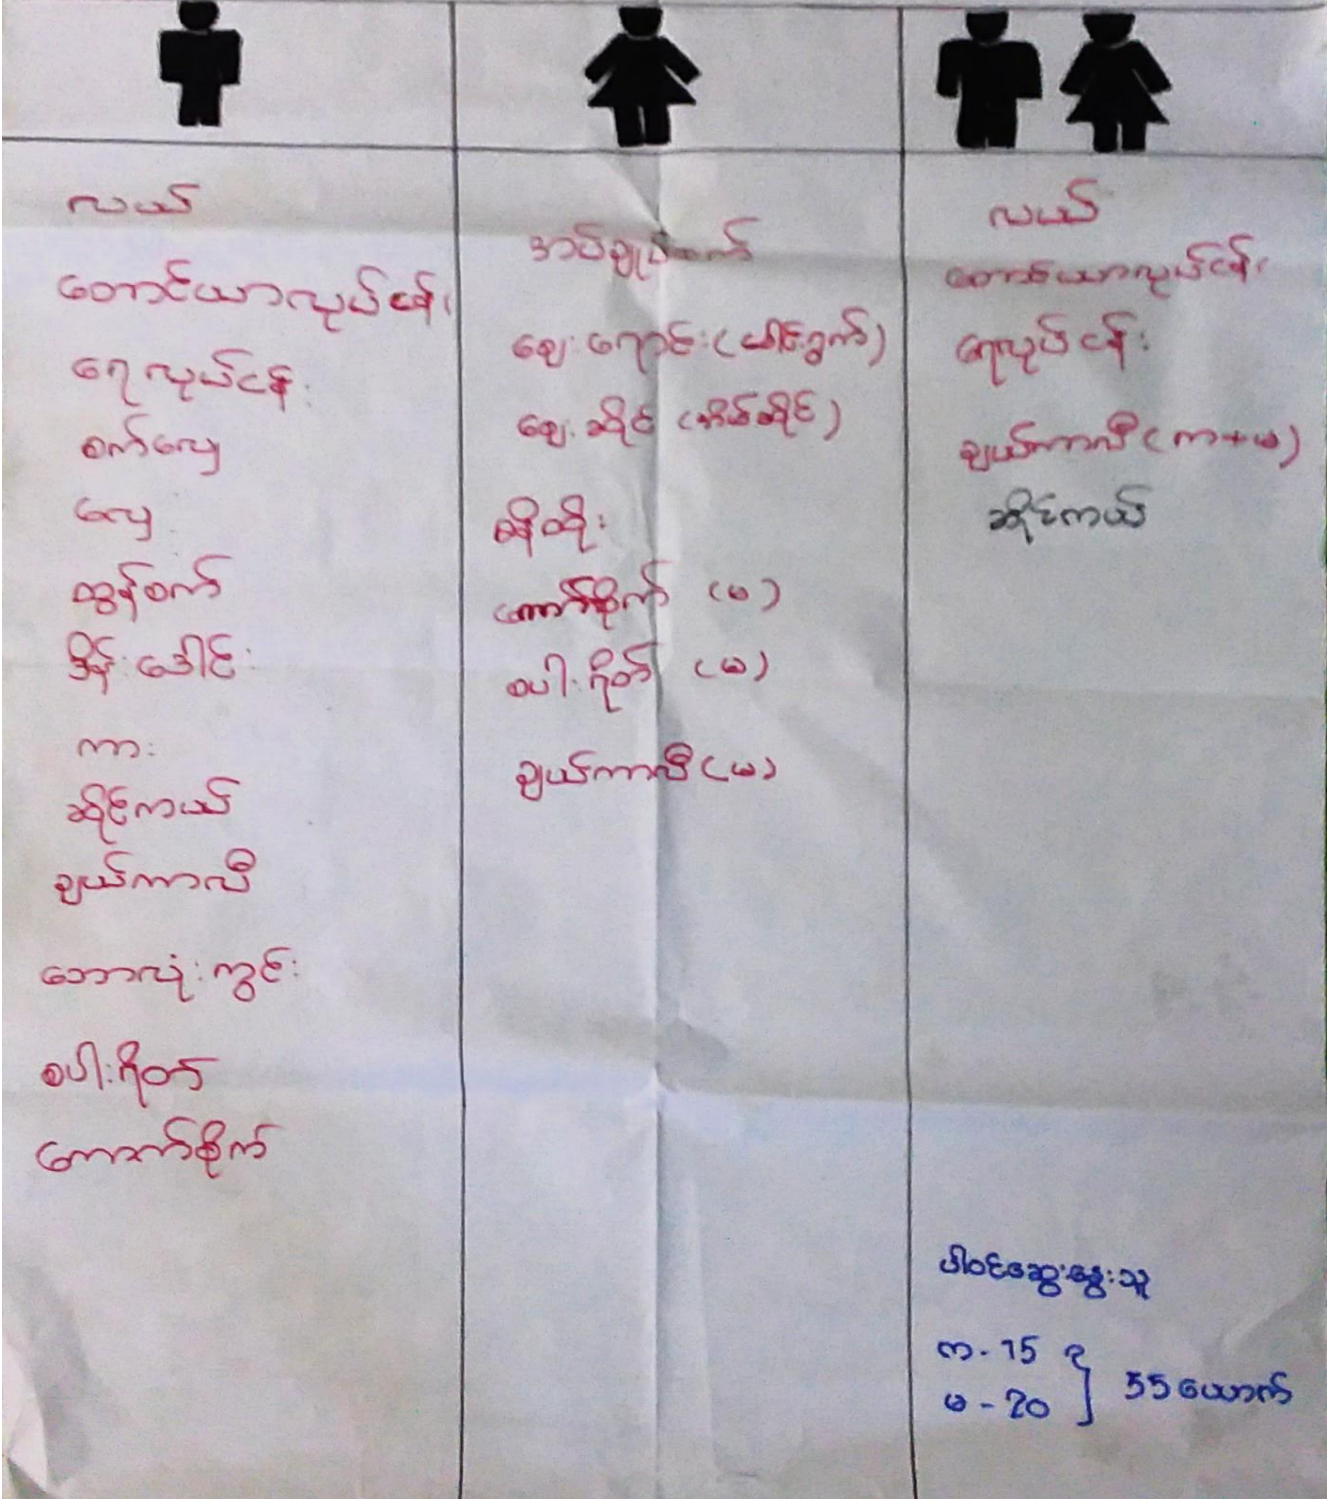 လယ်
တောင်ယာလုပ်ငန်း
ရေလုပ်ငန်း
စက်လှေ
လှေ
ထွန်စက်
ဒိန်းဒေါင်း
ကား
ဆိုင်ကယ်
ချယ်ကာလီ
ဘောလုံးကွင်း
စပါးရိတ်
ကောက်စိုက်
အပ်ချုပ်စက်
ဈေးရောင်း (ခေါင်းရွက်)
ဈေးဆိုင် (အိမ်ဆိုင်)
ဆီထိုး
ကောက်စိုက် (မ)
စပါးရိတ် (မ)
ချယ်ကာလီ (မ)
လယ်
တောင်ယာလုပ်ငန်း
ရေလုပ်ငန်း
ချယ်ကာလီ (ကာ+မ)
ဆိုင်ကယ်
ပါဝင်ဆွေးနွေးသူ
က - 15
မ - 20
35 ယောက်